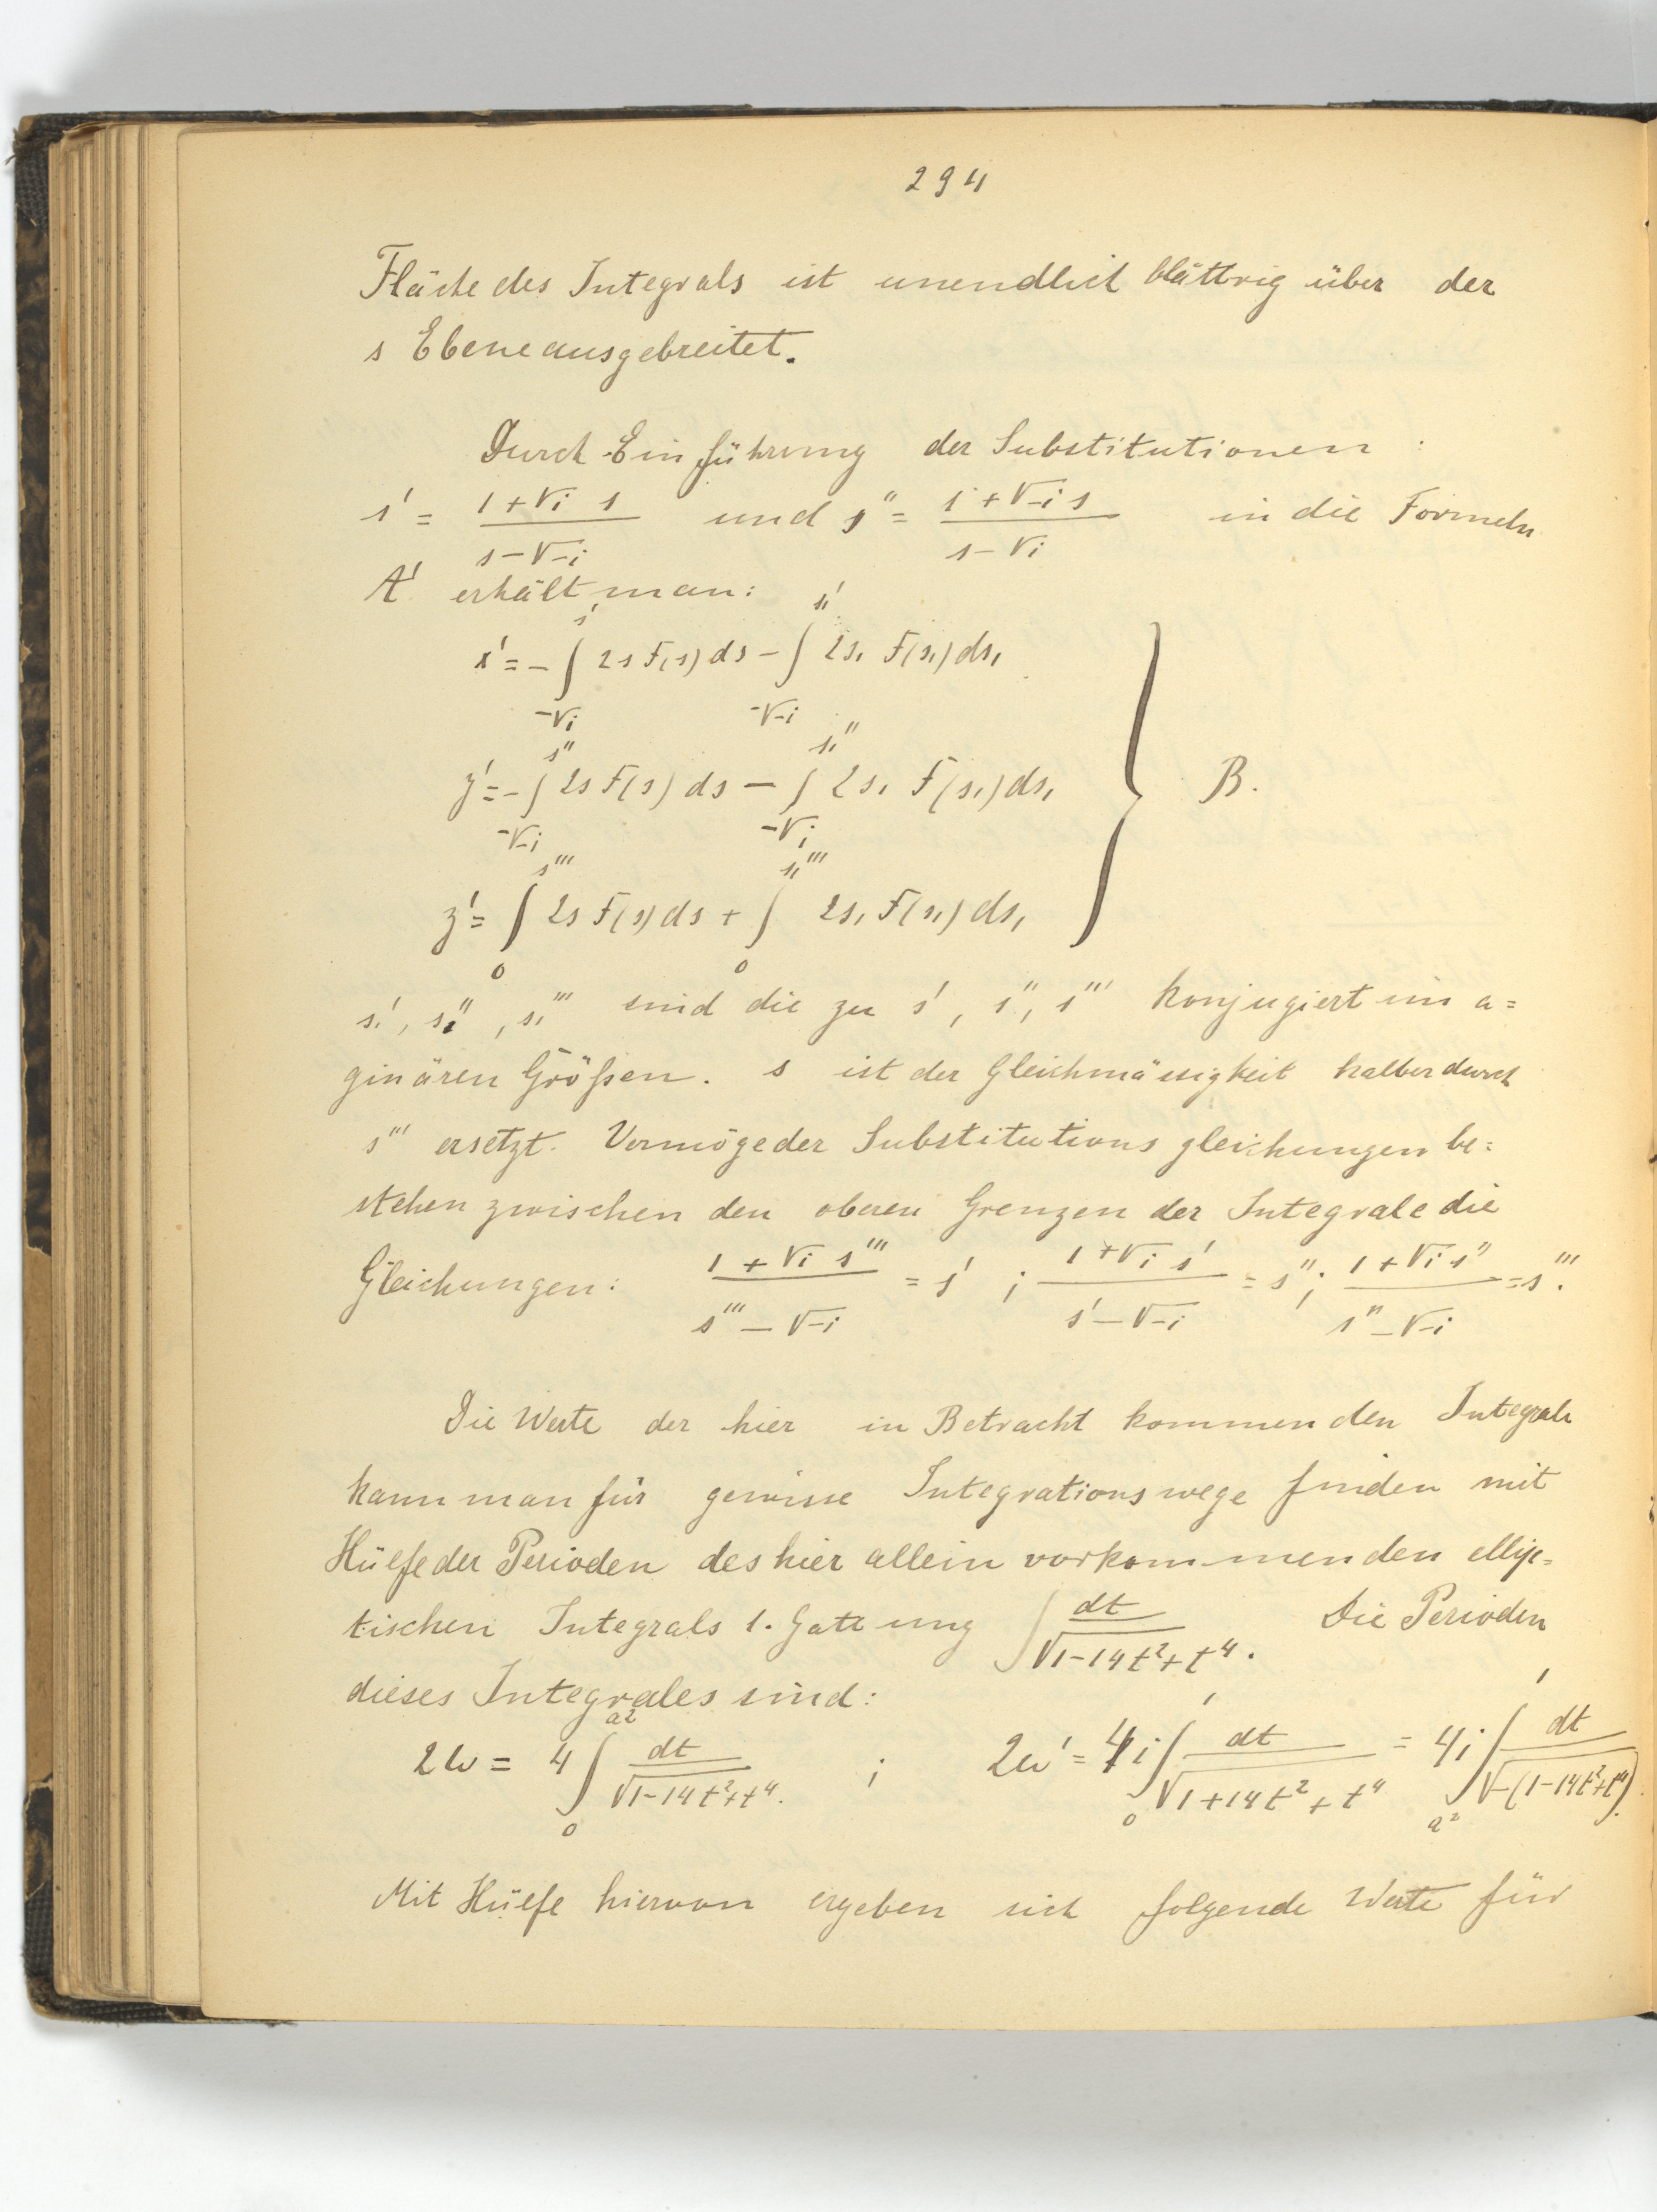 294
Fläche des Integrals ist unendlich blättrig über der
s Ebene ausgebreitet.
Durch Einführung der Substitutionen:
s' = (1+√i s)/(s-√-i) und s'' = (1+√-i s)/(s-√i) in die Formeln
A' erhält man:
x' = -∫_{-√i}^{s'} 2s F(s) ds - ∫_{-√-i}^{s₁'} 2s₁ F(s₁) ds₁
y' = -∫_{-√-i}^{s''} 2s F(s) ds - ∫_{-√i}^{s₁''} 2s₁ F(s₁) ds₁ } B.
z' = ∫_0^{s'''} 2s F(s) ds + ∫_0^{s₁'''} 2s₁ F(s₁) ds₁
s₁', s₁'', s₁''' sind die zu s', s'', s''' konjugiert im a=
ginären Größen. s ist der Gleichmässigkeit halber durch
s''' ersetzt. Vermöge der Substitutionsgleichungen be=
stehen zwischen den oberen Grenzen der Integrale die
Gleichungen: (1+√i s''')/(s'''-√-i) = s' ; (1+√i s')/(s'-√-i) = s''; (1+√i s'')/(s''-√-i) = s'''.
Die Werte der hier in Betracht kommenden Integrale
kann man für gewisse Integrationswege finden mit
Hülfe der Perioden des hier allein vorkommenden ellip=
tischen Integrals 1. Gattung ∫ dt/√(1-14t²+t⁴). Die Perioden
dieses Integrales sind:
2ω = 4∫_0^{a²} dt/√(1-14t²+t⁴). ; 2ω' = 4i∫_0^1 dt/√(1+14t²+t⁴) = 4i∫_{a²}^1 dt/√(-(1-14t²+t⁴)).
Mit Hülfe hiervon ergeben sich folgende Werte für